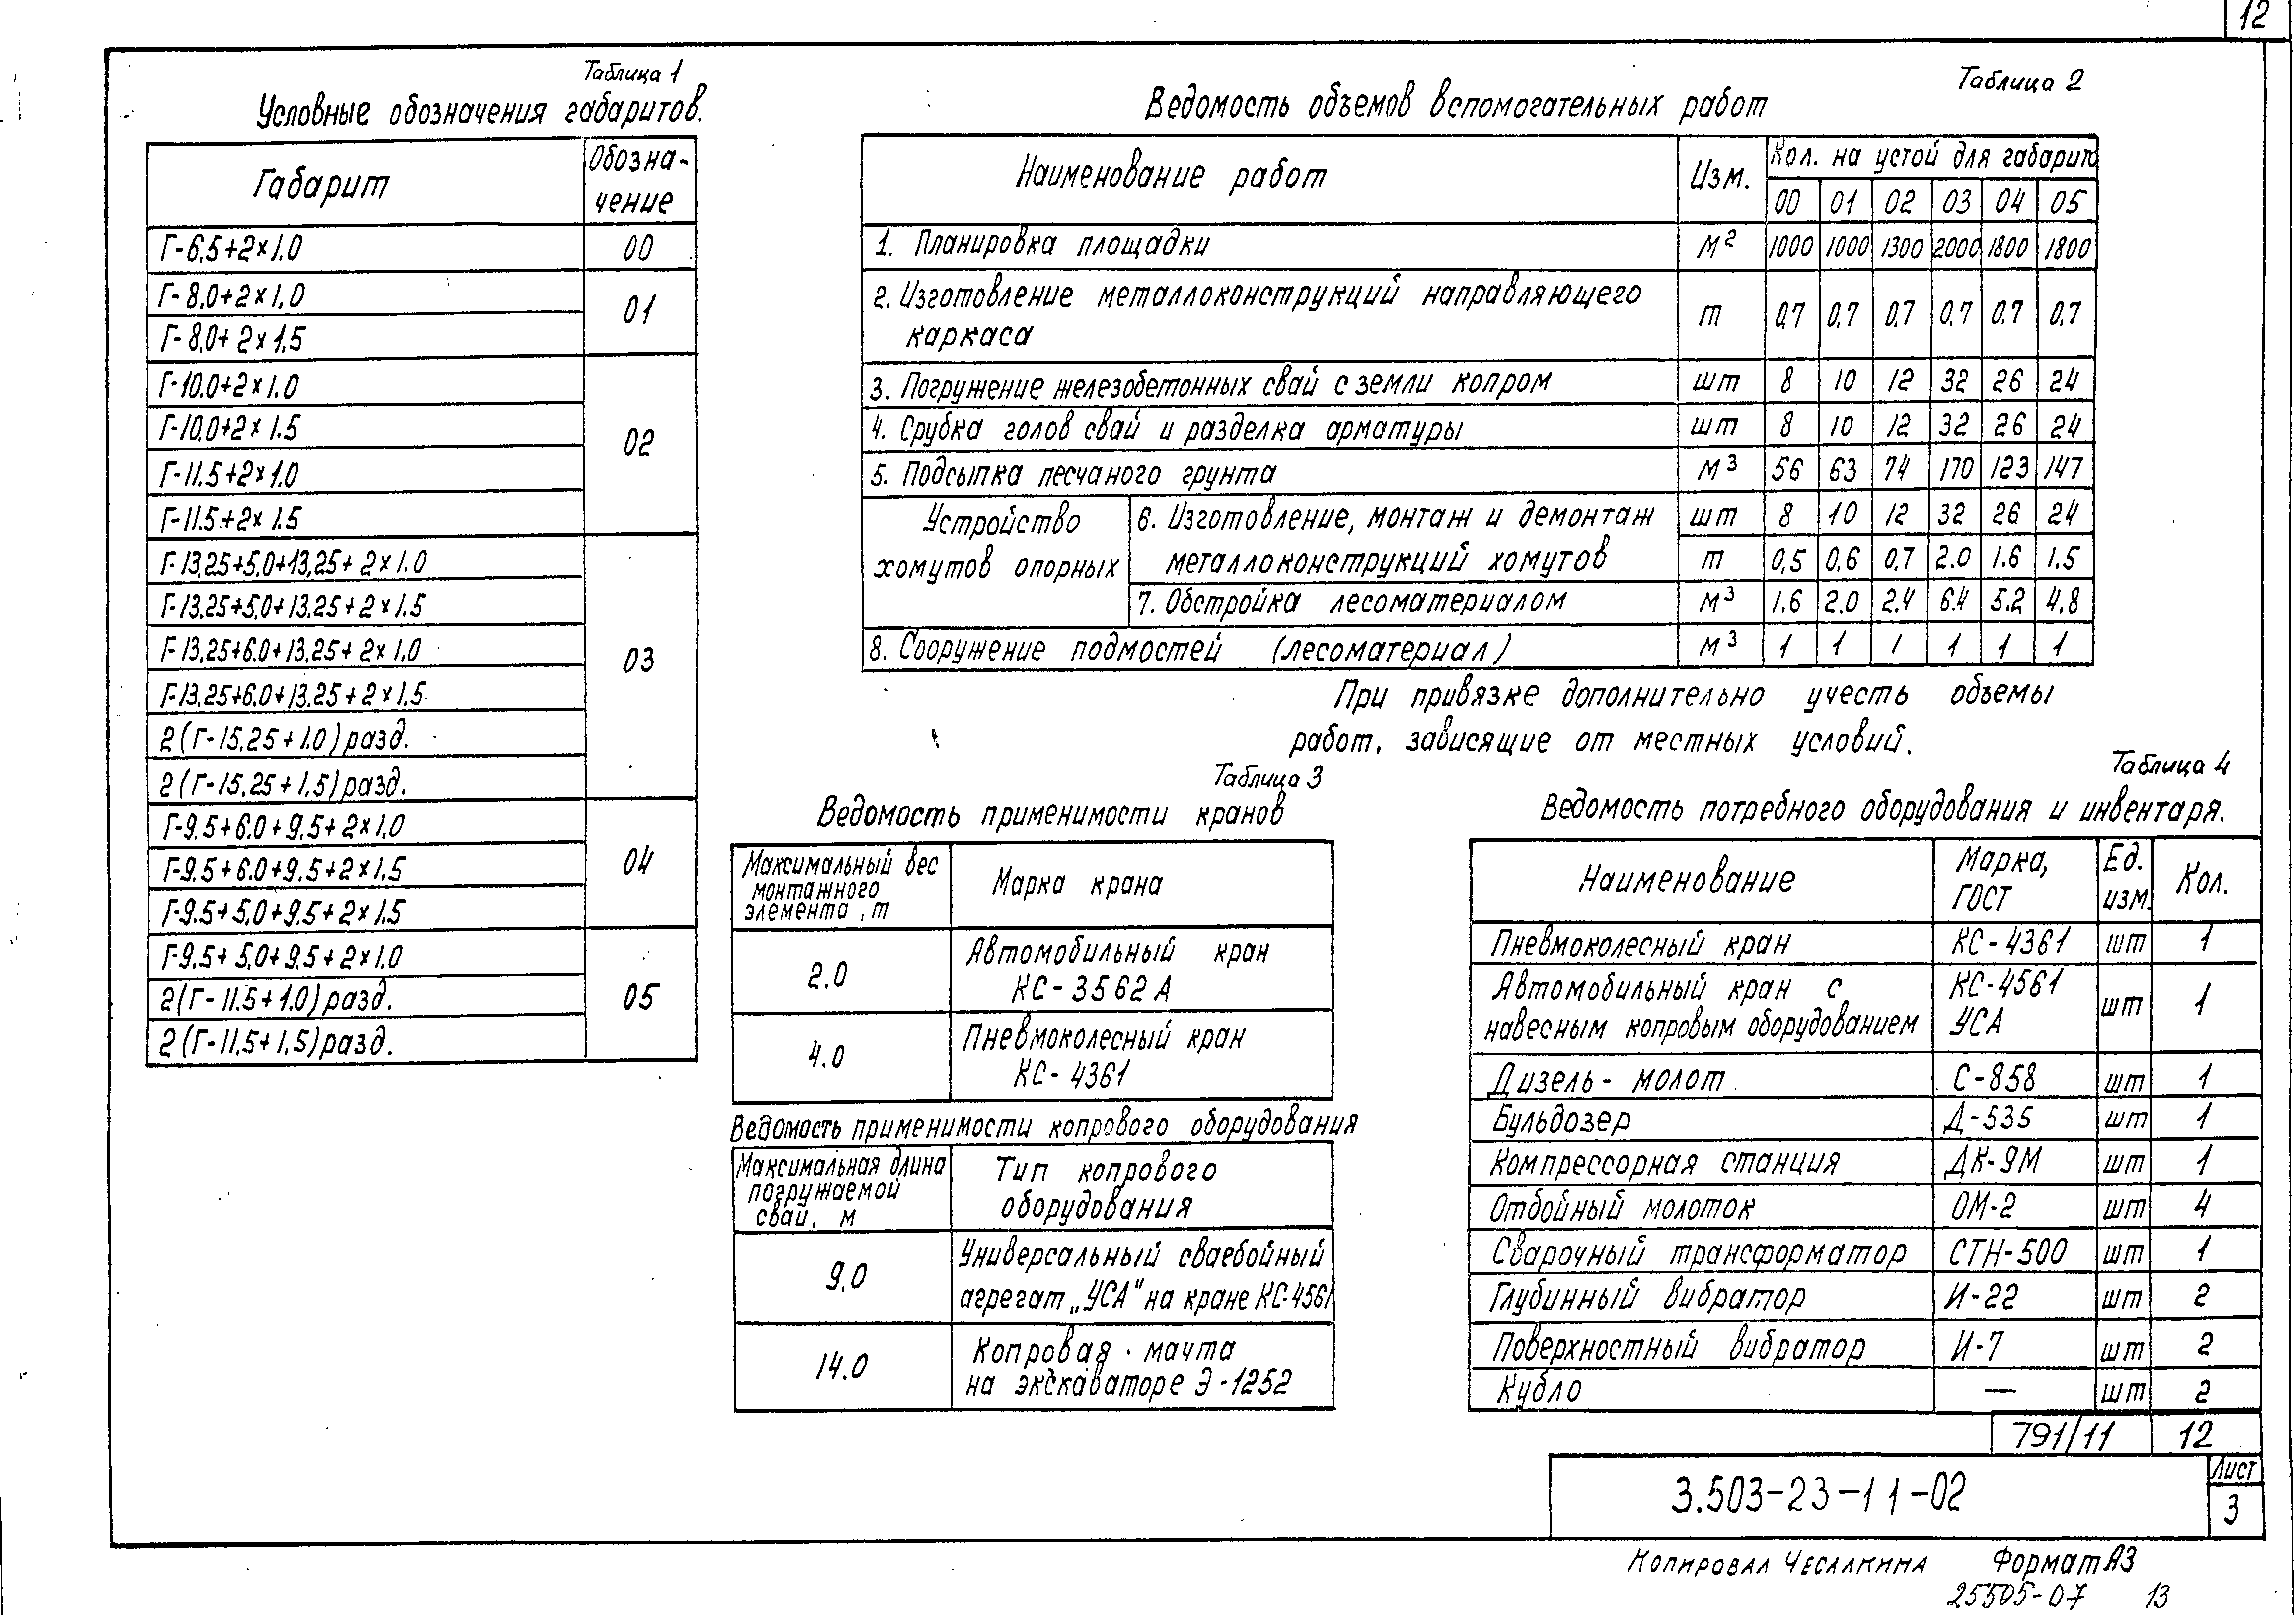 12
Таблица 1
Условные обозначения габаритов.
Габарит | Обозна-
чение
Г-6,5+2×1.0 | 00
Г-8,0+2×1,0 | 01
Г-8,0+2×1,5
Г-10.0+2×1.0 | 02
Г-10,0+2×1.5
Г-11.5+2×1.0
Г-11.5+2×1.5
Г-13,25+5,0+13,25+2×1.0 | 03
Г-13,25+5,0+13,25+2×1,5
Г-13,25+6.0+13,25+2×1,0
Г-13,25+6.0+13,25+2×1,5
2(Г-15,25+1.0)разд.
2(Г-15,25+1,5)разд.
Г-9,5+6.0+9,5+2×1,0 | 04
Г-9,5+6.0+9,5+2×1,5
Г-9.5+5,0+9,5+2×1.5
Г-9,5+5,0+9,5+2×1,0 | 05
2(Г-11.5+1.0)разд.
2(Г-11,5+1,5)разд.
Таблица 2
Ведомость объемов вспомогательных работ
Наименование работ | Изм. | Кол. на устой для габарит
00 | 01 | 02 | 03 | 04 | 05
1. Планировка площадки | м² | 1000 | 1000 | 1300 | 2000 | 1800 | 1800
2. Изготовление металлоконструкций направляющего
каркаса | т | 0,7 | 0,7 | 0,7 | 0,7 | 0,7 | 0,7
3. Погружение железобетонных свай с земли копром | шт | 8 | 10 | 12 | 32 | 26 | 24
4. Срубка голов свай и разделка арматуры | шт | 8 | 10 | 12 | 32 | 26 | 24
5. Подсыпка песчаного грунта | м³ | 56 | 63 | 74 | 170 | 123 | 147
Устройство
хомутов опорных
6. Изготовление, монтаж и демонтаж | шт | 8 | 10 | 12 | 32 | 26 | 24
металлоконструкций хомутов | т | 0,5 | 0,6 | 0,7 | 2.0 | 1.6 | 1.5
7. Обстройка лесоматериалом | м³ | 1.6 | 2.0 | 2.4 | 6.4 | 5.2 | 4.8
8. Сооружение подмостей (лесоматериал) | м³ | 1 | 1 | 1 | 1 | 1 | 1
При привязке дополнительно учесть объемы
работ, зависящие от местных условий.
Таблица 3
Ведомость применимости кранов
Максимальный вес
монтажного
элемента, т | Марка крана
2.0 | Автомобильный кран
КС-3562А
4.0 | Пневмоколесный кран
КС-4361
Ведомость применимости копрового оборудования
Максимальная длина
погружаемой
сваи, м | Тип копрового
оборудования
9.0 | Универсальный сваебойный
агрегат „УСА" на кране КС-4561
14.0 | Копровая мачта
на экскаваторе Э-1252
Таблица 4
Ведомость потребного оборудования и инвентаря.
Наименование | Марка,
ГОСТ | Ед.
изм. | Кол.
Пневмоколесный кран | КС-4361 | шт | 1
Автомобильный кран с
навесным копровым оборудованием | КС-4561
УСА | шт | 1
Дизель-молот | С-858 | шт | 1
Бульдозер | Д-535 | шт | 1
Компрессорная станция | ДК-9М | шт | 1
Отбойный молоток | ОМ-2 | шт | 4
Сварочный трансформатор | СТН-500 | шт | 1
Глубинный вибратор | И-22 | шт | 2
Поверхностный вибратор | И-7 | шт | 2
Кубло | — | шт | 2
791/11 | 12
3.503-23-11-02
Лист
3
Копировал Чесалкина Формат А3
25505-07 13